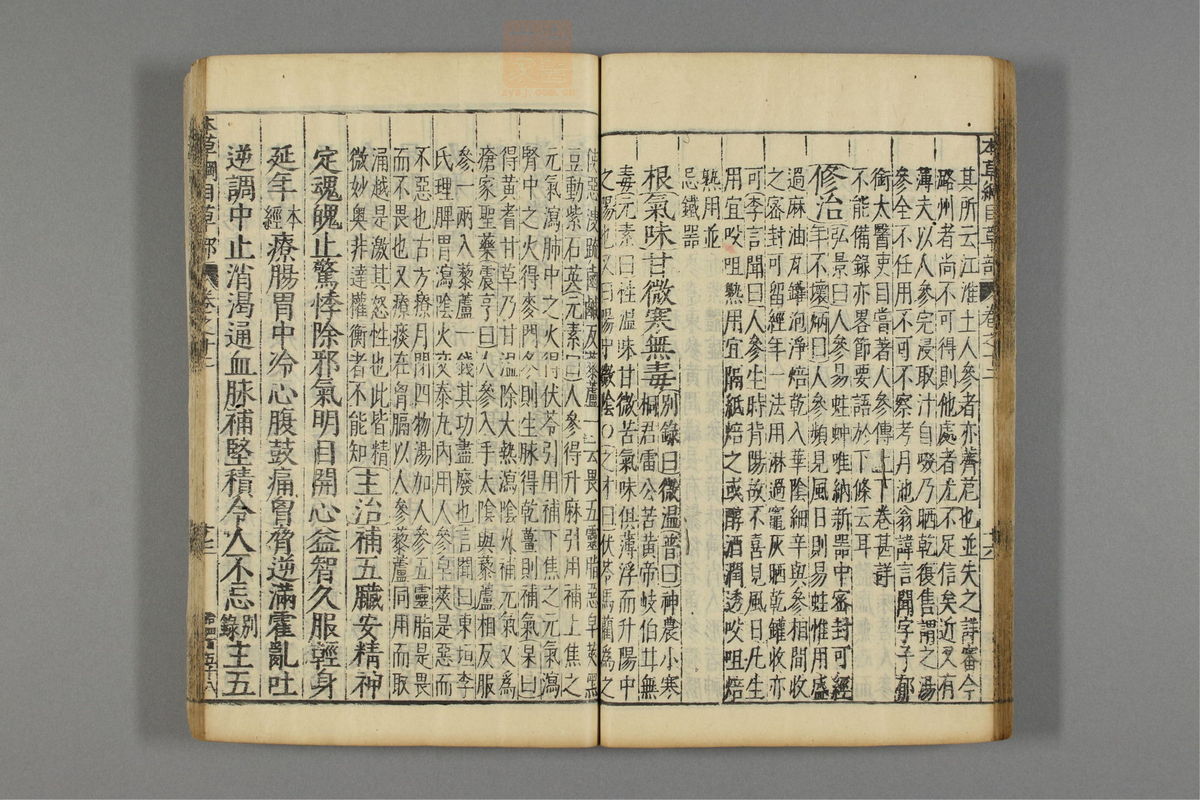 本草綱目草部 卷之十二 十六
其所云江淮土人參者亦薺苨也並失之詳審今
潞州者尚不可得則他處者尤不足信矣近又有
薄夫以人參完浸取汁自啜乃晒乾復售謂之湯
參全不任用不可不察考月池翁諱言聞字子郁
銜太醫吏目嘗著人參傳上下卷甚詳
不能備錄亦畧節要語於下條云耳
修治 弘景曰人參易蛀蚛唯納新器中密封可經
年不壞炳曰人參頻見風日則易蛀惟用盛
過麻油瓦罐泡淨焙乾入華陰細辛與參相間收
之密封可留經年一法用淋過竈灰晒乾罐收亦
可李言聞曰人參生時背陽故不喜見風日凡生
用宜㕮咀熟用宜隔紙焙之或醇酒潤透㕮咀焙
熟用並
忌鐵器
根氣味甘微寒無毒 別錄曰微溫普曰神農小寒
桐君雷公苦黃帝岐伯甘無
毒元素曰性溫味甘微苦氣味俱薄浮而升陽中
之陽也又曰陽中微陰○之才曰伏苓馬藺爲之
使惡溲疏鹵鹹反藜蘆一云畏五靈脂惡皁莢黑
豆動紫石英元素曰人參得升麻引用補上焦之
元氣瀉肺中之火得伏苓引用補下焦之元氣瀉
腎中之火得麥門冬則生脉得乾薑則補氣杲曰
得黃耆甘草乃甘溫除大熱瀉陰火補元氣又爲
瘡家聖藥震亨曰人參入手太陰與藜蘆相反服
參一兩入藜蘆一錢其功盡廢也言聞曰東垣李
氏理脾胃瀉陰火交泰丸內用人參皂莢是惡而
不惡也古方療月閉四物湯加人參五靈脂是畏
而不畏也又療痰在胷膈以人參藜蘆同用而取
涌越是激其怒性也此皆精
微妙奧非達權衡者不能知 主治補五臟安精神
定魂魄止驚悸除邪氣明目開心益智久服輕身
延年本經療腸胃中冷心腹鼓痛胷脅逆滿霍亂吐
逆調中止消渴通血脉補堅積令人不忘別錄主五
本草綱目草部 卷之十二